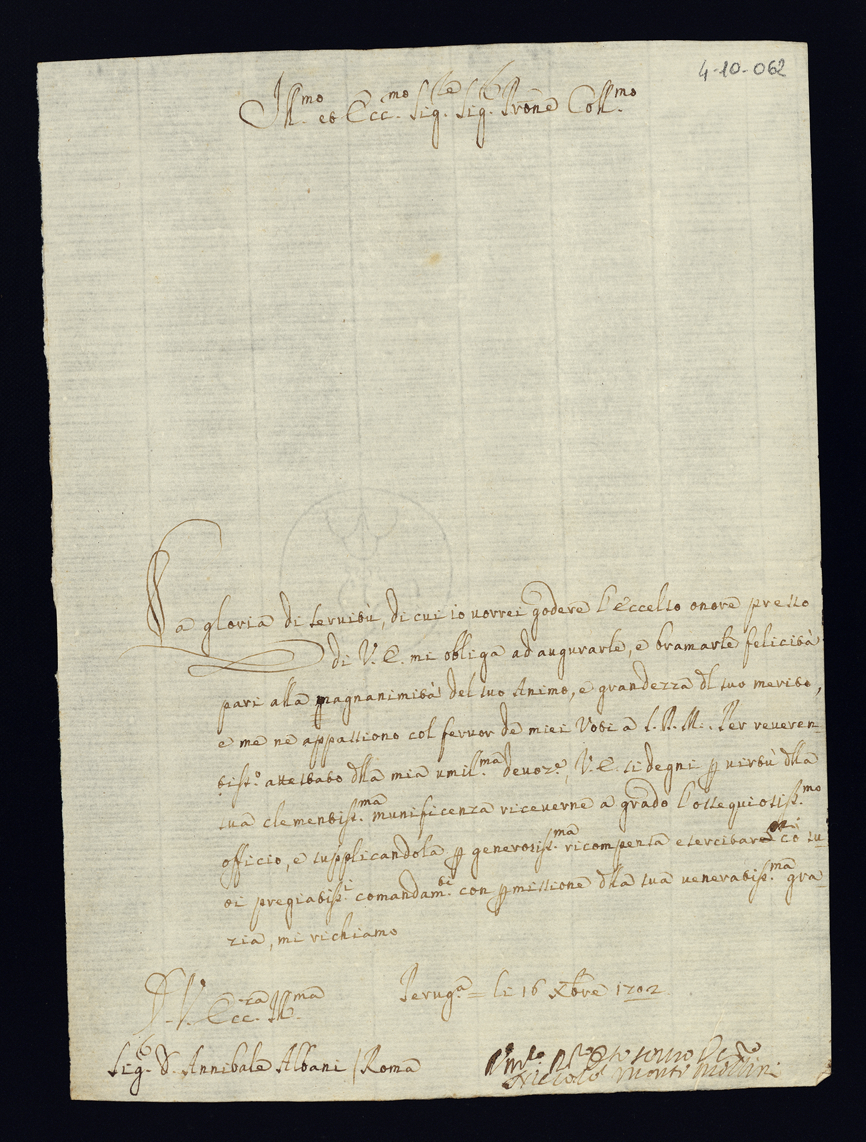 4-10-062
Ill.mo et Ecc.mo Sig.re Sig. Prone Coll.mo
La gloria di servitù, di cui io vorrei godere l'eccelso onore presso
di V. E. mi obliga ad augurarle, e bramarle felicità
pari alla magnanimità del suo Animo, e grandezza dl suo merito,
e me ne appassiono col fervor de miei Voti a S. D. M. Per reveren-
tiss.o attestato dlla mia umil.ma devoz.e, V. E. si degni p virtù dlla
sua clementiss.ma munificenza riceverne a grado l'ossequiosiss.mo
officio, e supplicandola p generosiss.ma ricompensa esercitare co su-
oi pregiatiss.i comandam.ti con pmissione dlla sua veneratiss.ma gra
zia, mi richiamo
D. V. Ecc.za Ill.ma
Perug.a = li 16 Xbre 1702
Sig. D. Annibale Albani / Roma
Niccolò Monti